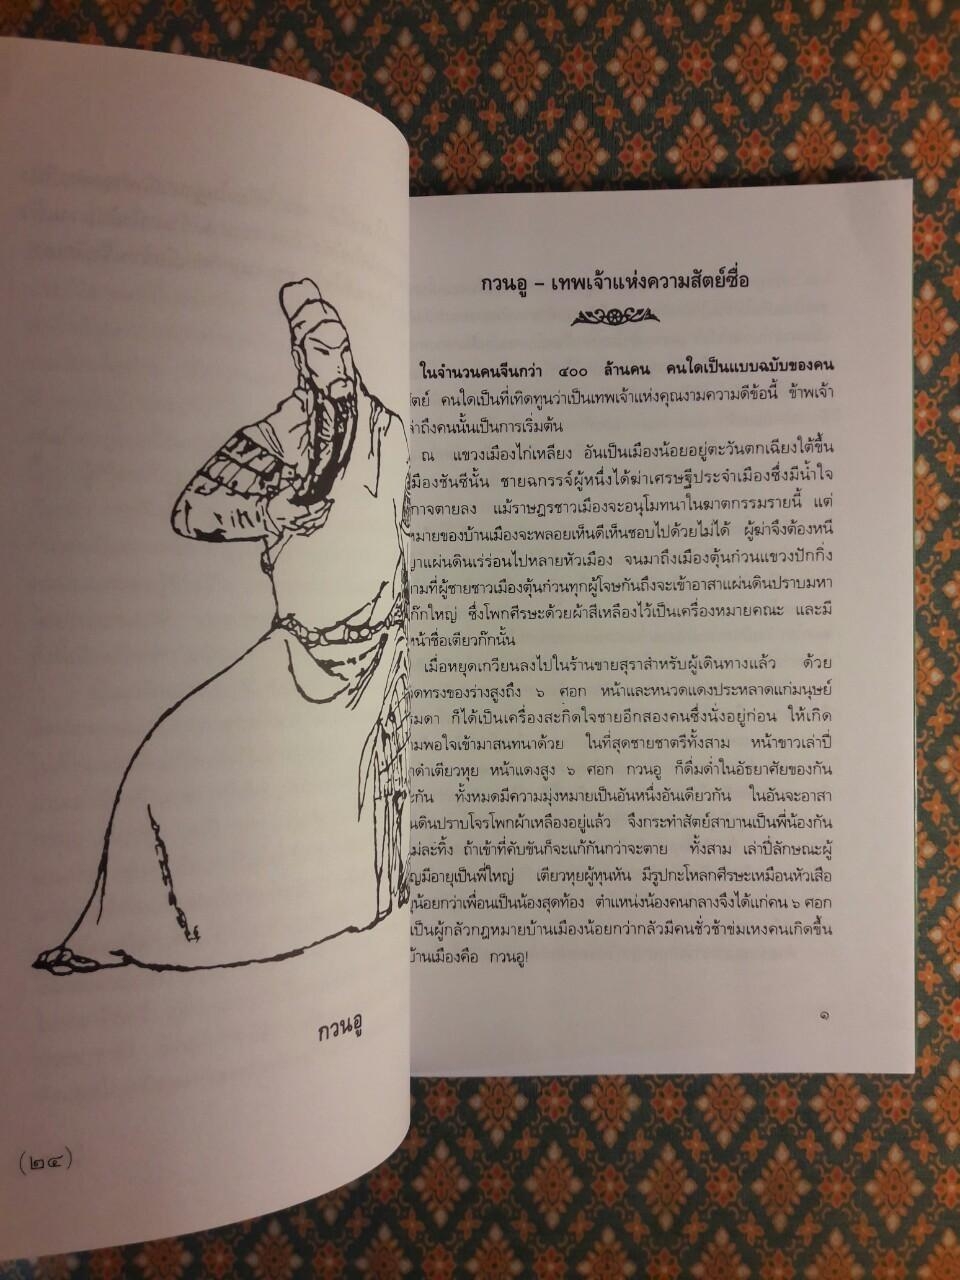 กวนอู
(๒๔)
กวนอู – เทพเจ้าแห่งความสัตย์ซื่อ
ในจำนวนคนจีนกว่า ๔๐๐ ล้านคน คนใดเป็นแบบฉบับของคน
คนใดเป็นที่เทิดทูนว่าเป็นเทพเจ้าแห่งคุณงามความดีข้อนี้ ข้าพเจ้า
ถึงคนนั้นเป็นการเริ่มต้น
ณ แขวงเมืองไก่เหลียง อันเป็นเมืองน้อยอยู่ตะวันตกเฉียงใต้ขึ้น
เมืองชันซีนั้น ชายฉกรรจ์ผู้หนึ่งได้ฆ่าเศรษฐีประจำเมืองซึ่งมีน้ำใจ
ตายลง แม้ราษฎรชาวเมืองจะอนุโมทนาในฆาตกรรมรายนี้ แต่
ของบ้านเมืองจะพลอยเห็นดีเห็นชอบไปด้วยไม่ได้ ผู้ฆ่าจึงต้องหนี
แผ่นดินเร่ร่อนไปหลายหัวเมือง จนมาถึงเมืองตุ้นก๋วนแขวงปักกิ่ง
ที่ผู้ชายชาวเมืองตุ้นก๋วนทุกผู้โจษกันถึงจะเข้าอาสาแผ่นดินปราบมหา
ใหญ่ ซึ่งโพกศีรษะด้วยผ้าสีเหลืองไว้เป็นเครื่องหมายคณะ และมี
ชื่อเตียวก๊กนั้น
เมื่อหยุดเกวียนลงไปในร้านขายสุราสำหรับผู้เดินทางแล้ว ด้วย
ทรงของร่างสูงถึง ๖ ศอก หน้าและหนวดแดงประหลาดแก่มนุษย์
ก็ได้เป็นเครื่องสะกิดใจชายอีกสองคนซึ่งนั่งอยู่ก่อน ให้เกิด
พอใจเข้ามาสนทนาด้วย ในที่สุดชายชาตรีทั้งสาม หน้าขาวเล่าปี่
ดำเตียวหุย หน้าแดงสูง ๖ ศอก กวนอู ก็ดื่มด่ำในอัธยาศัยของกัน
กัน ทั้งหมดมีความมุ่งหมายเป็นอันหนึ่งอันเดียวกัน ในอันจะอาสา
ปราบโจรโพกผ้าเหลืองอยู่แล้ว จึงกระทำสัตย์สาบานเป็นพี่น้องกัน
ละทิ้ง ถ้าเข้าที่คับขันก็จะแก้กันกว่าจะตาย ทั้งสาม เล่าปี่ลักษณะผู้
มีอายุเป็นพี่ใหญ่ เตียวหุยผู้หุนหัน มีรูปกะโหลกศีรษะเหมือนหัวเสือ
น้อยกว่าเพื่อนเป็นน้องสุดท้อง ตำแหน่งน้องคนกลางจึงได้แก่คน ๖ ศอก
เป็นผู้กลัวกฎหมายบ้านเมืองน้อยกว่ากลัวมีคนชั่วช้าข่มเหงคนเกิดขึ้น
บ้านเมืองคือ กวนอู!
๑